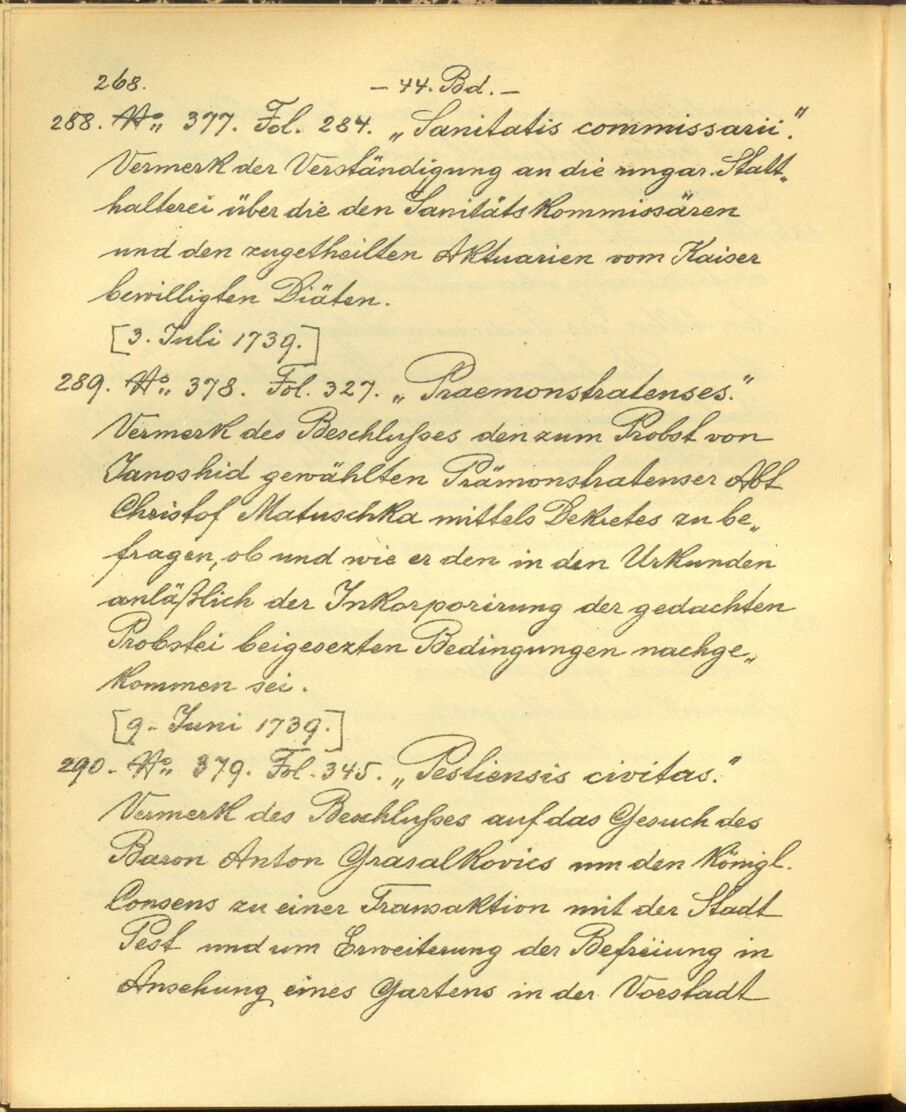 268. – 44. Bd. –
288. No: 377. Fol. 284. „Sanitatis commissarii."
Vermerk der Verständigung an die ungar. Statt„
halterei über die den Sanitätskommissären
und den zugetheilten Aktuarien vom Kaiser
bewilligten Diäten.
[3. Juli 1739.]
289. No: 378. Fol. 327. „Praemonstratenses."
Vermerk des Beschlußes den zum Probst von
Janoshid gewählten Prämonstratenser Abt
Christof Matuschka mittels Dekretes zu be„
fragen, ob und wie er den in den Urkunden
anläßlich der Inkorporirung der gedachten
Probstei beigesezten Bedingungen nachge„
kommen sei.
[9. Juni 1739.]
290. No: 379. Fol. 345. „Pestiensis civitas."
Vermerk des Beschlußes auf das Gesuch des
Baron Anton Grasalkovics um den königl.
Consens zu einer Transaktion mit der Stadt
Pest und um Erweiterung der Befreiung in
Ansehung eines Gartens in der Vorstadt